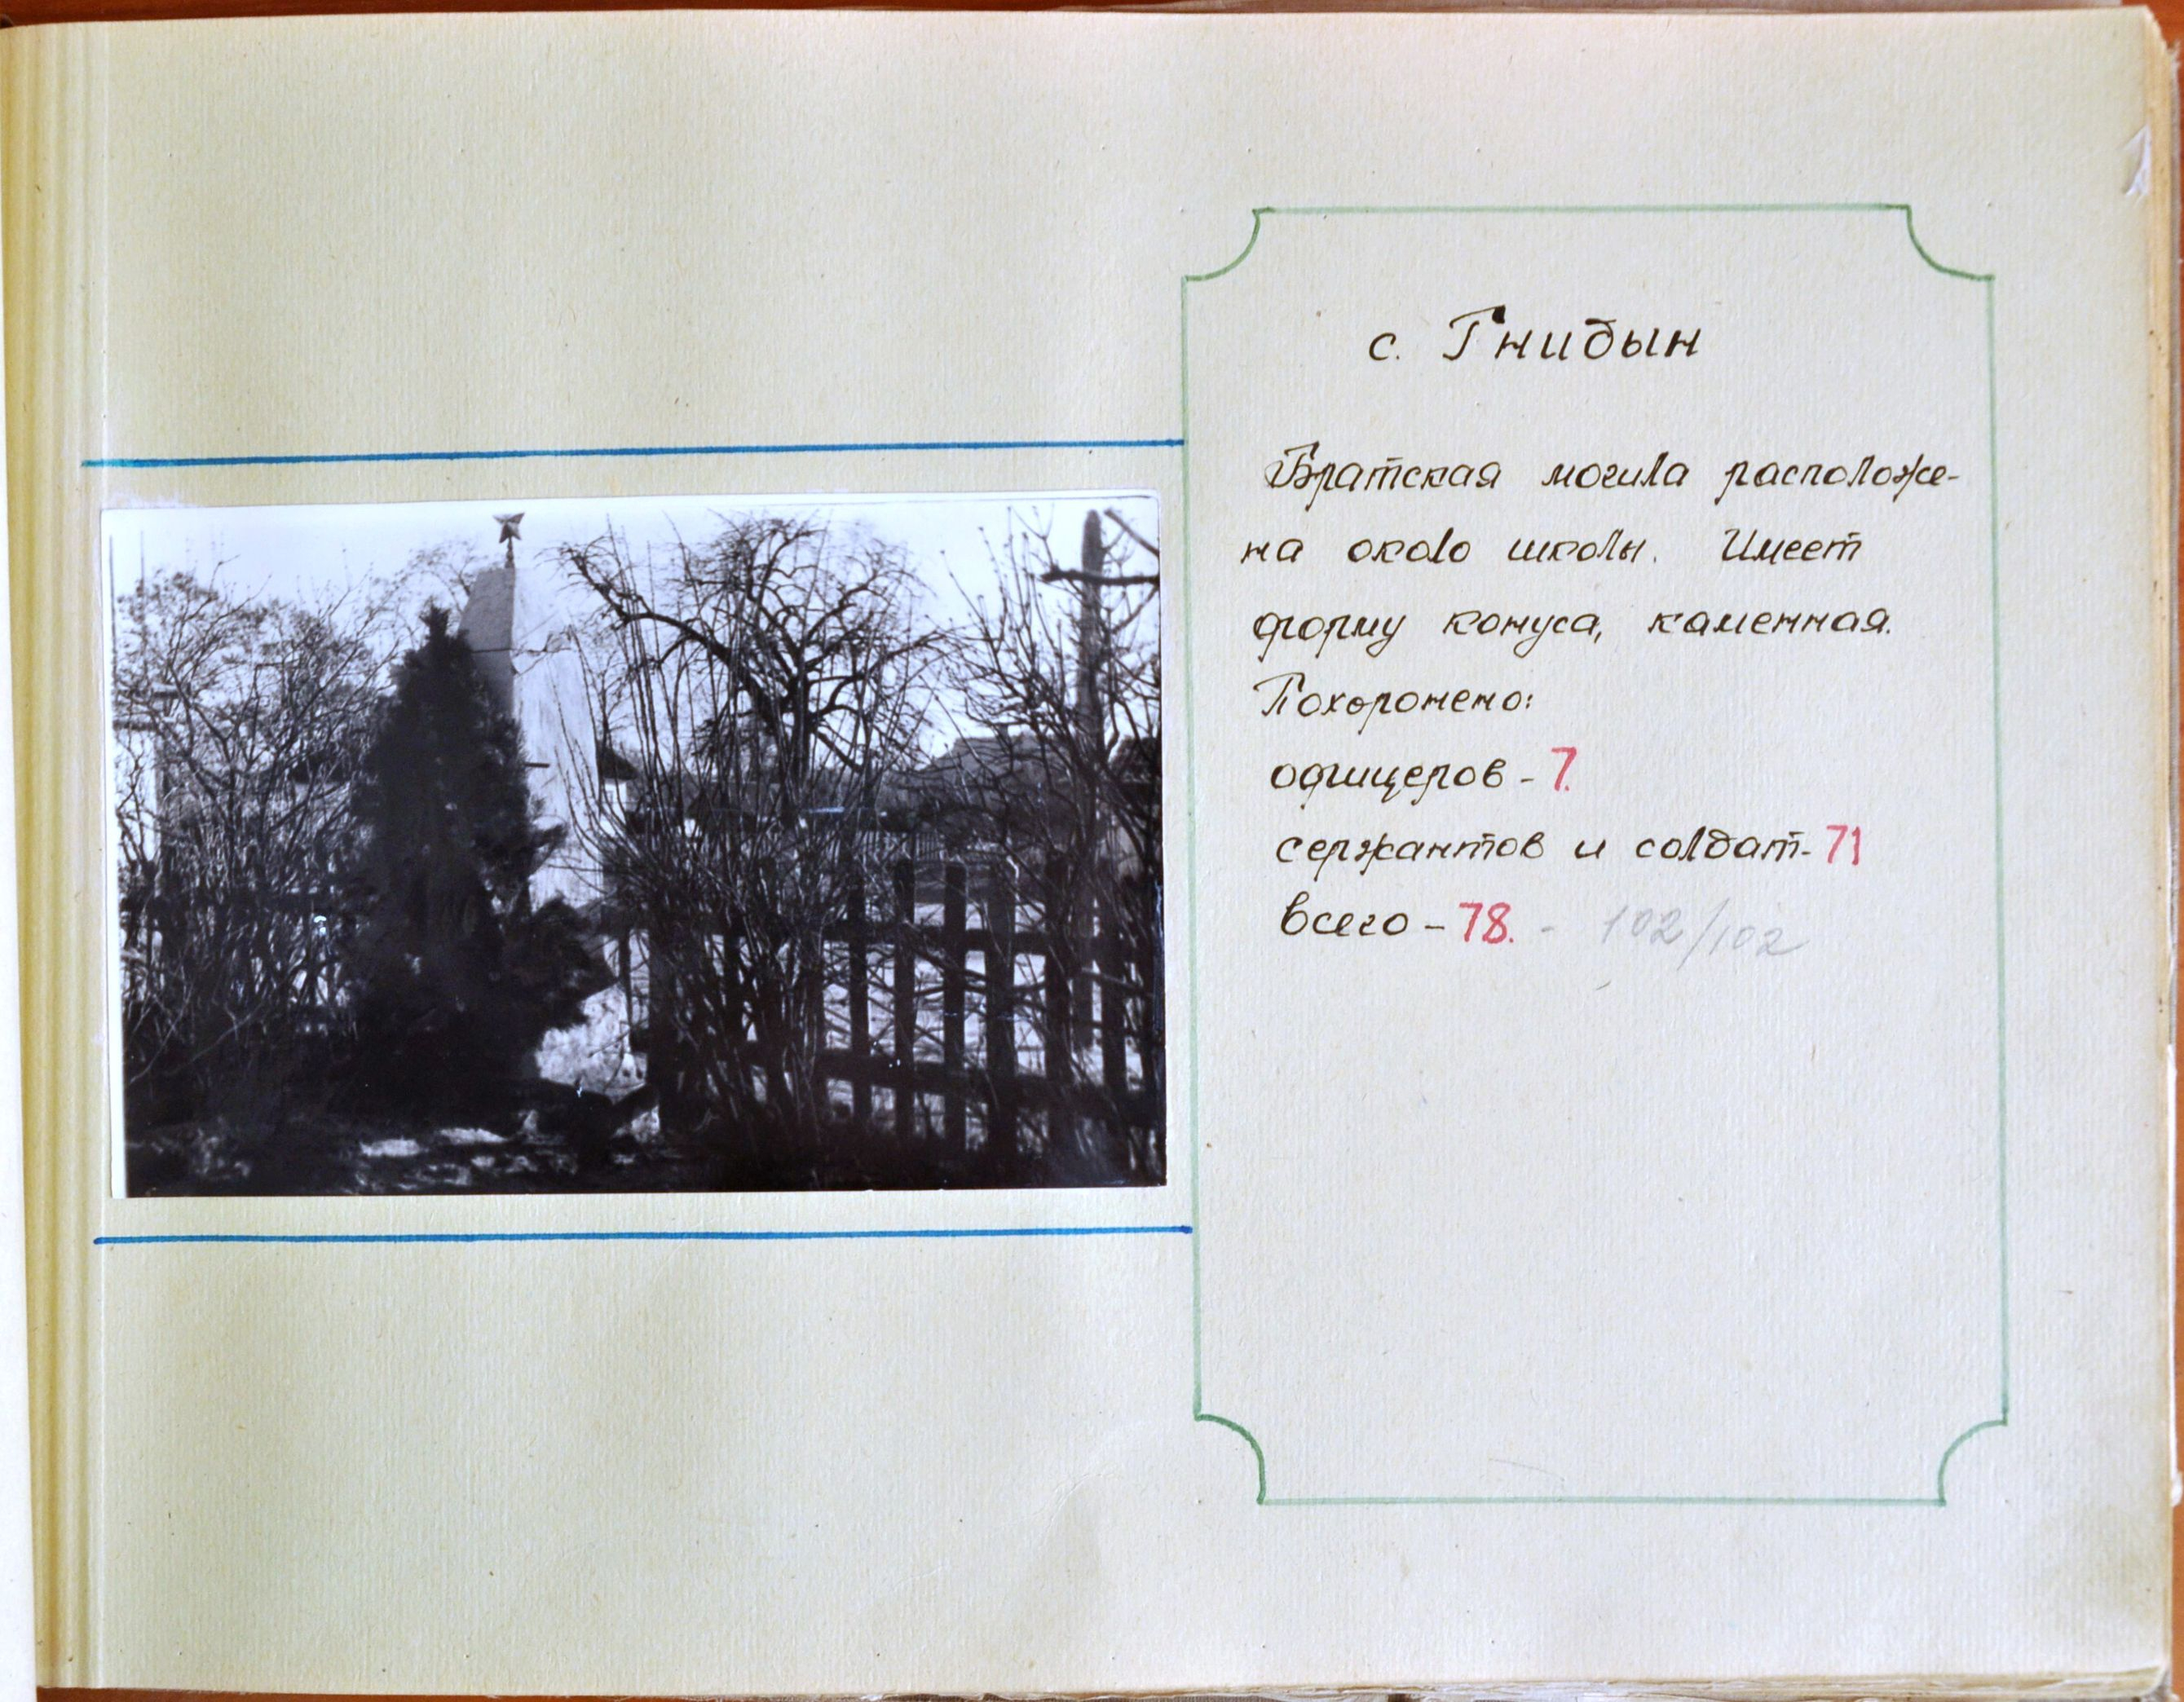 с. Гнидын
Братская могила расположе-
на около школы. Имеет
форму конуса, каменная.
Похоронено:
офицеров - 7.
сержантов и солдат - 71
всего - 78. - 102/102